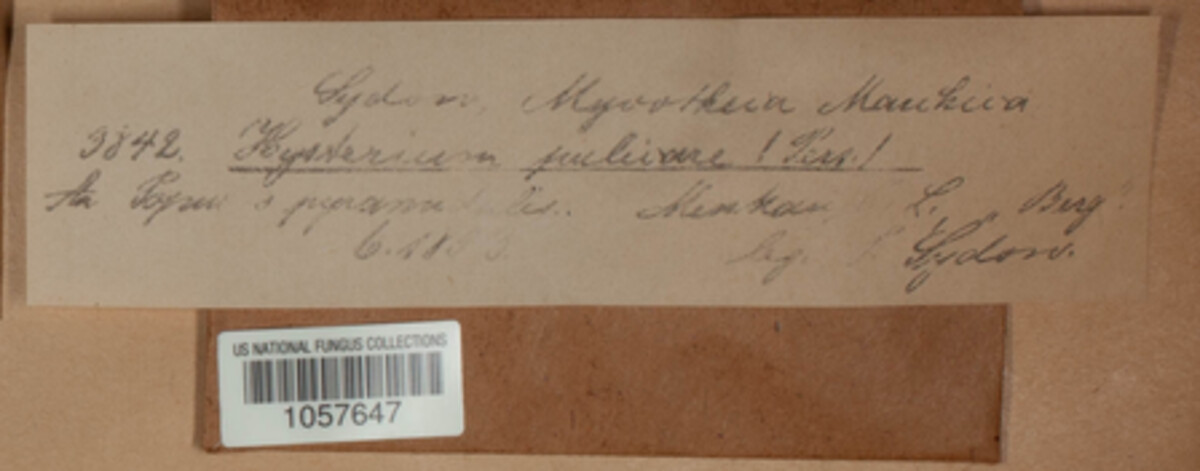 Sydow, Mycotheca Marchica
3842. Hysterium pulicare (Pers.)
An Populus pyramidalis.. L. Berg
6. 18 leg. Sydow.
US NATIONAL FUNGUS COLLECTIONS
1057647